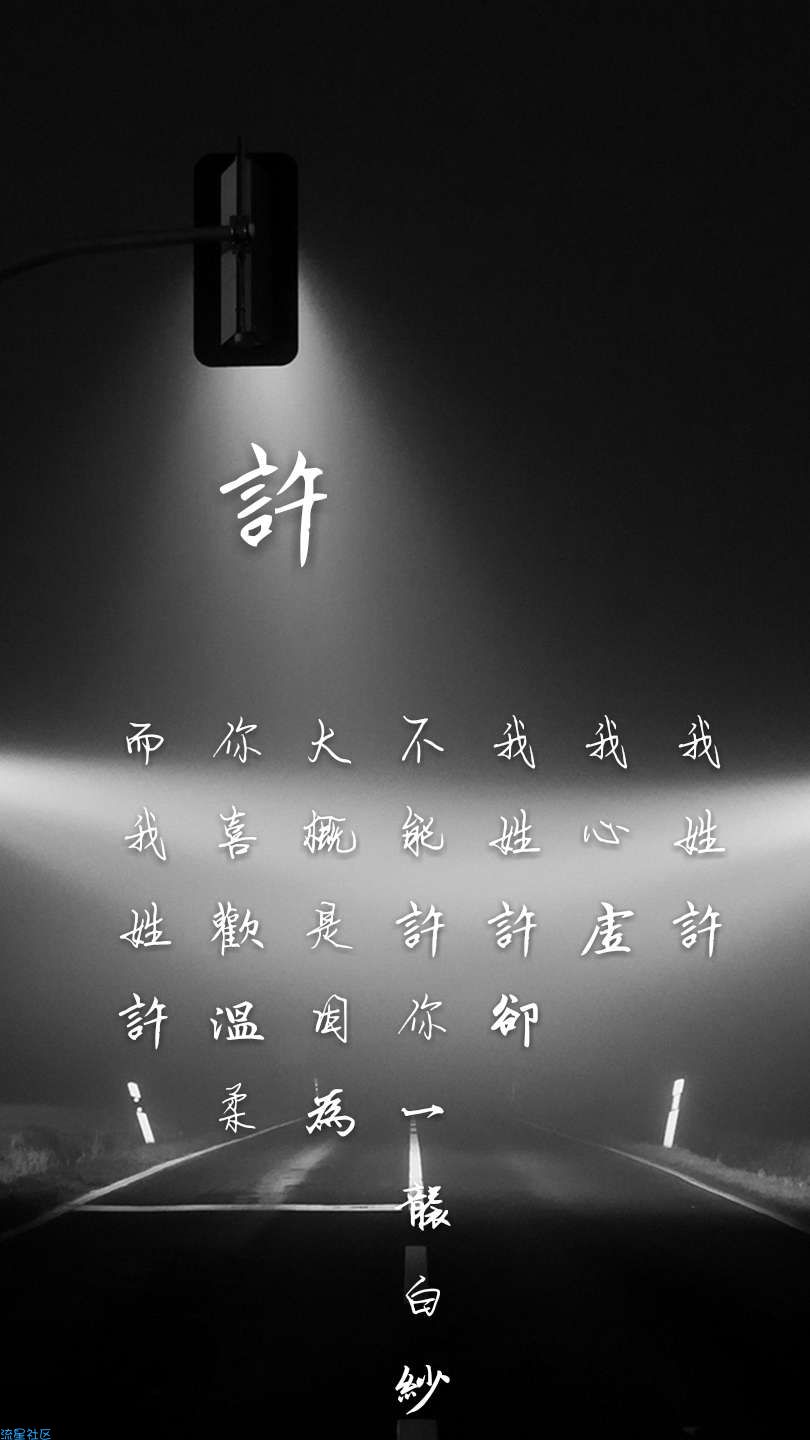 許
我姓許
我心虛
我姓許卻
不能許你一襲白紗
大概是因為
你喜歡溫柔
而我姓許
流星社区